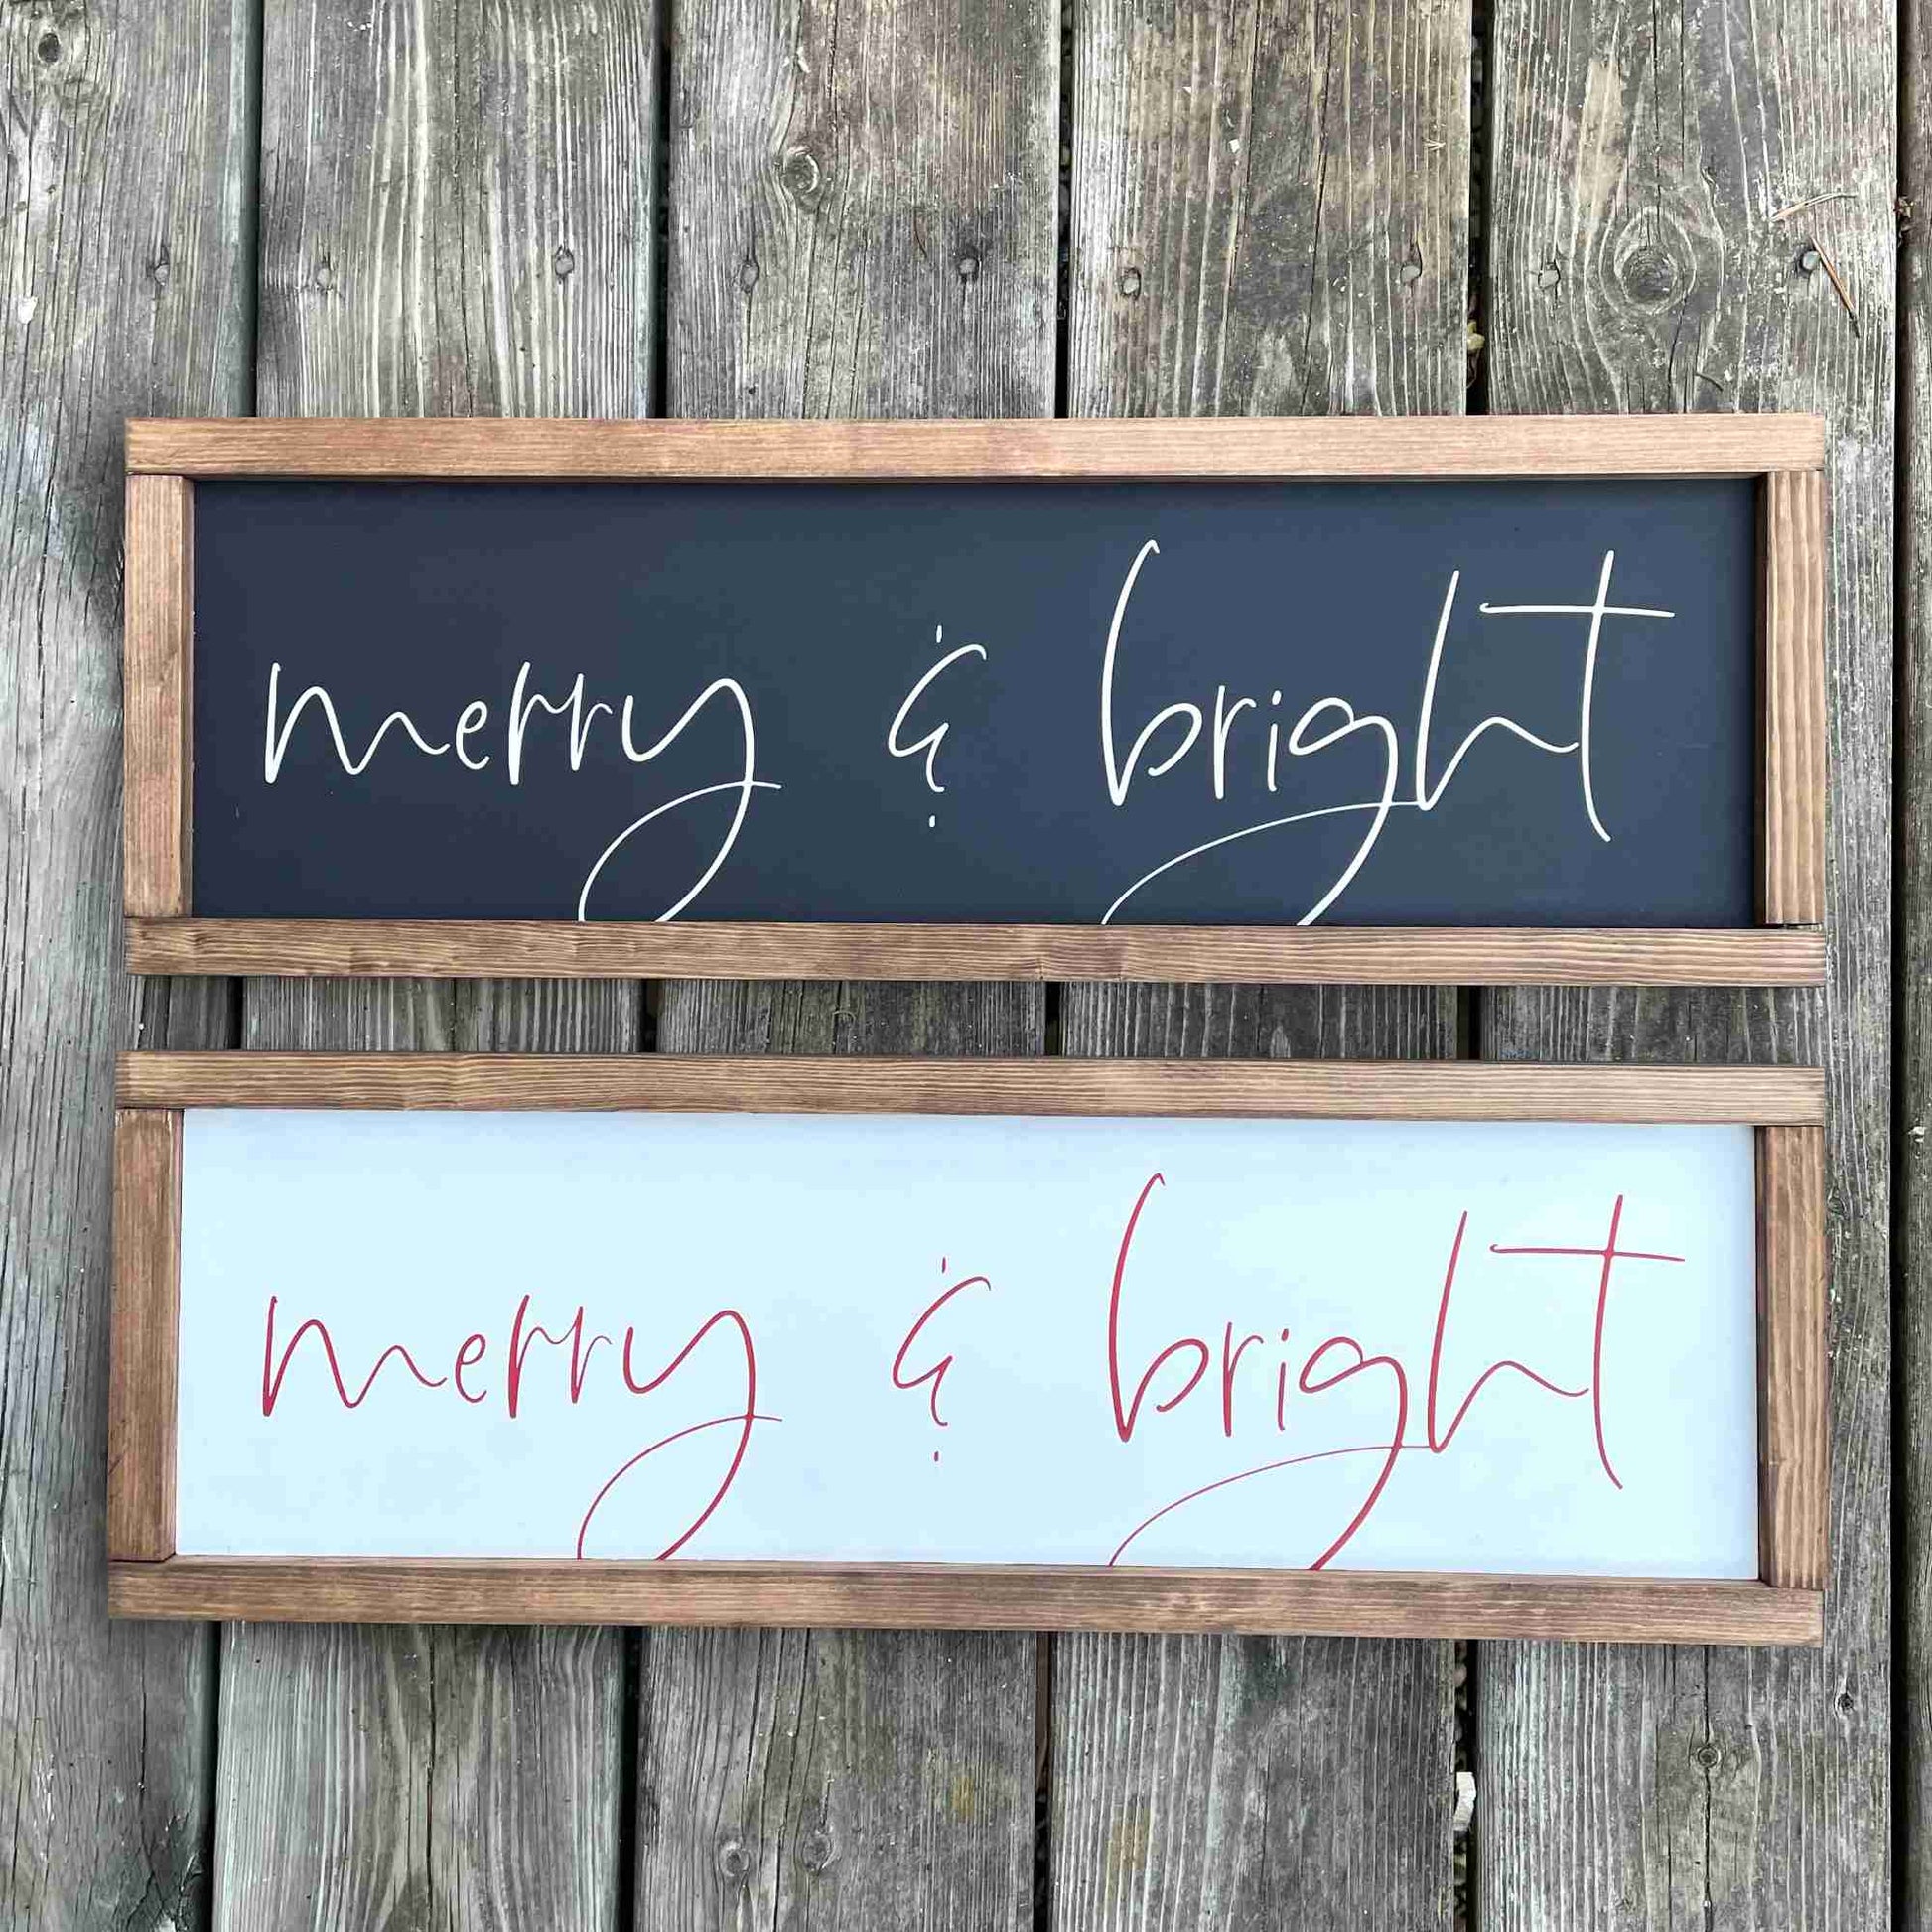 merry & bright
merry & bright